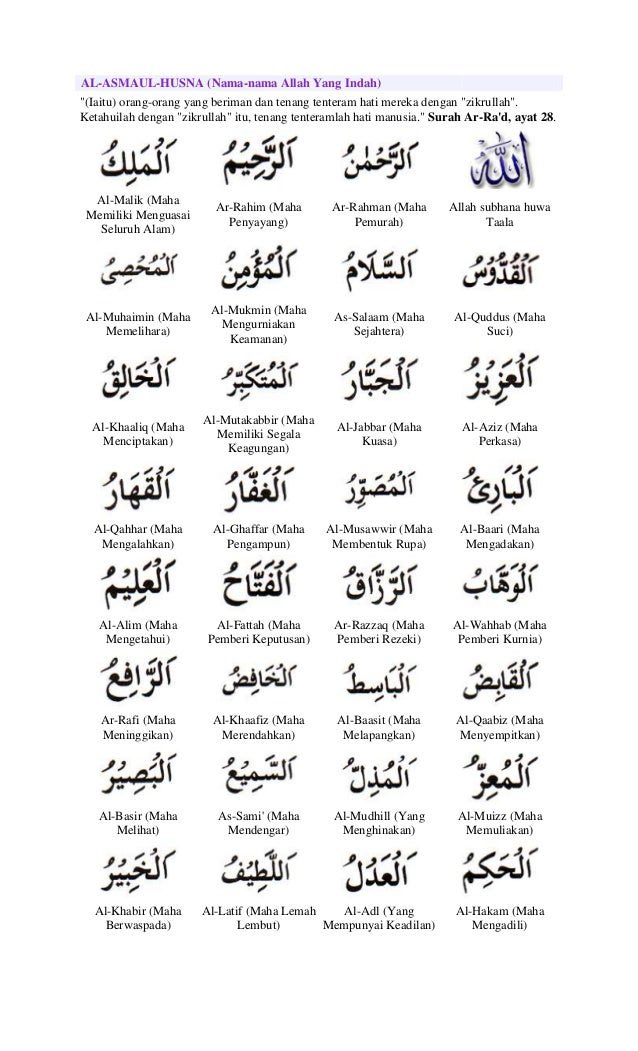 AL-ASMAUL-HUSNA (Nama-nama Allah Yang Indah)
"(Iaitu) orang-orang yang beriman dan tenang tenteram hati mereka dengan "zikrullah".
Ketahuilah dengan "zikrullah" itu, tenang tenteramlah hati manusia." Surah Ar-Ra'd, ayat 28.
الله
Allah subhana huwa
Taala
اَلرَّحْمٰنُ
Ar-Rahman (Maha
Pemurah)
اَلرَّحِيْمُ
Ar-Rahim (Maha
Penyayang)
اَلْمَلِكُ
Al-Malik (Maha
Memiliki Menguasai
Seluruh Alam)
اَلْقُدُّوْسُ
Al-Quddus (Maha
Suci)
اَلسَّلَامُ
As-Salaam (Maha
Sejahtera)
اَلْمُؤْمِنُ
Al-Mukmin (Maha
Mengurniakan
Keamanan)
اَلْمُحْصِىُ
Al-Muhaimin (Maha
Memelihara)
اَلْعَزِيْزُ
Al-Aziz (Maha
Perkasa)
اَلْجَبَّارُ
Al-Jabbar (Maha
Kuasa)
اَلْمُتَكَبِّرُ
Al-Mutakabbir (Maha
Memiliki Segala
Keagungan)
اَلْخَالِقُ
Al-Khaaliq (Maha
Menciptakan)
اَلْبَارِئُ
Al-Baari (Maha
Mengadakan)
اَلْمُصَوِّرُ
Al-Musawwir (Maha
Membentuk Rupa)
اَلْغَفَّارُ
Al-Ghaffar (Maha
Pengampun)
اَلْقَهَارُ
Al-Qahhar (Maha
Mengalahkan)
اَلْوَهَّابُ
Al-Wahhab (Maha
Pemberi Kurnia)
اَلرَّزَّاقُ
Ar-Razzaq (Maha
Pemberi Rezeki)
اَلْفَتَّاحُ
Al-Fattah (Maha
Pemberi Keputusan)
اَلْعَلِيْمُ
Al-Alim (Maha
Mengetahui)
اَلْقَابِضُ
Al-Qaabiz (Maha
Menyempitkan)
اَلْبَاسِطُ
Al-Baasit (Maha
Melapangkan)
اَلْخَافِضُ
Al-Khaafiz (Maha
Merendahkan)
اَلرَّافِعُ
Ar-Rafi (Maha
Meninggikan)
اَلْمُعِزُّ
Al-Muizz (Maha
Memuliakan)
اَلْمُذِلُّ
Al-Mudhill (Yang
Menghinakan)
اَلسَّمِيْعُ
As-Sami' (Maha
Mendengar)
اَلْبَصِيْرُ
Al-Basir (Maha
Melihat)
اَلْحَكِمُ
Al-Hakam (Maha
Mengadili)
اَلْعَدْلُ
Al-Adl (Yang
Mempunyai Keadilan)
اَللَّطِيْفُ
Al-Latif (Maha Lemah
Lembut)
اَلْخَبِيْرُ
Al-Khabir (Maha
Berwaspada)